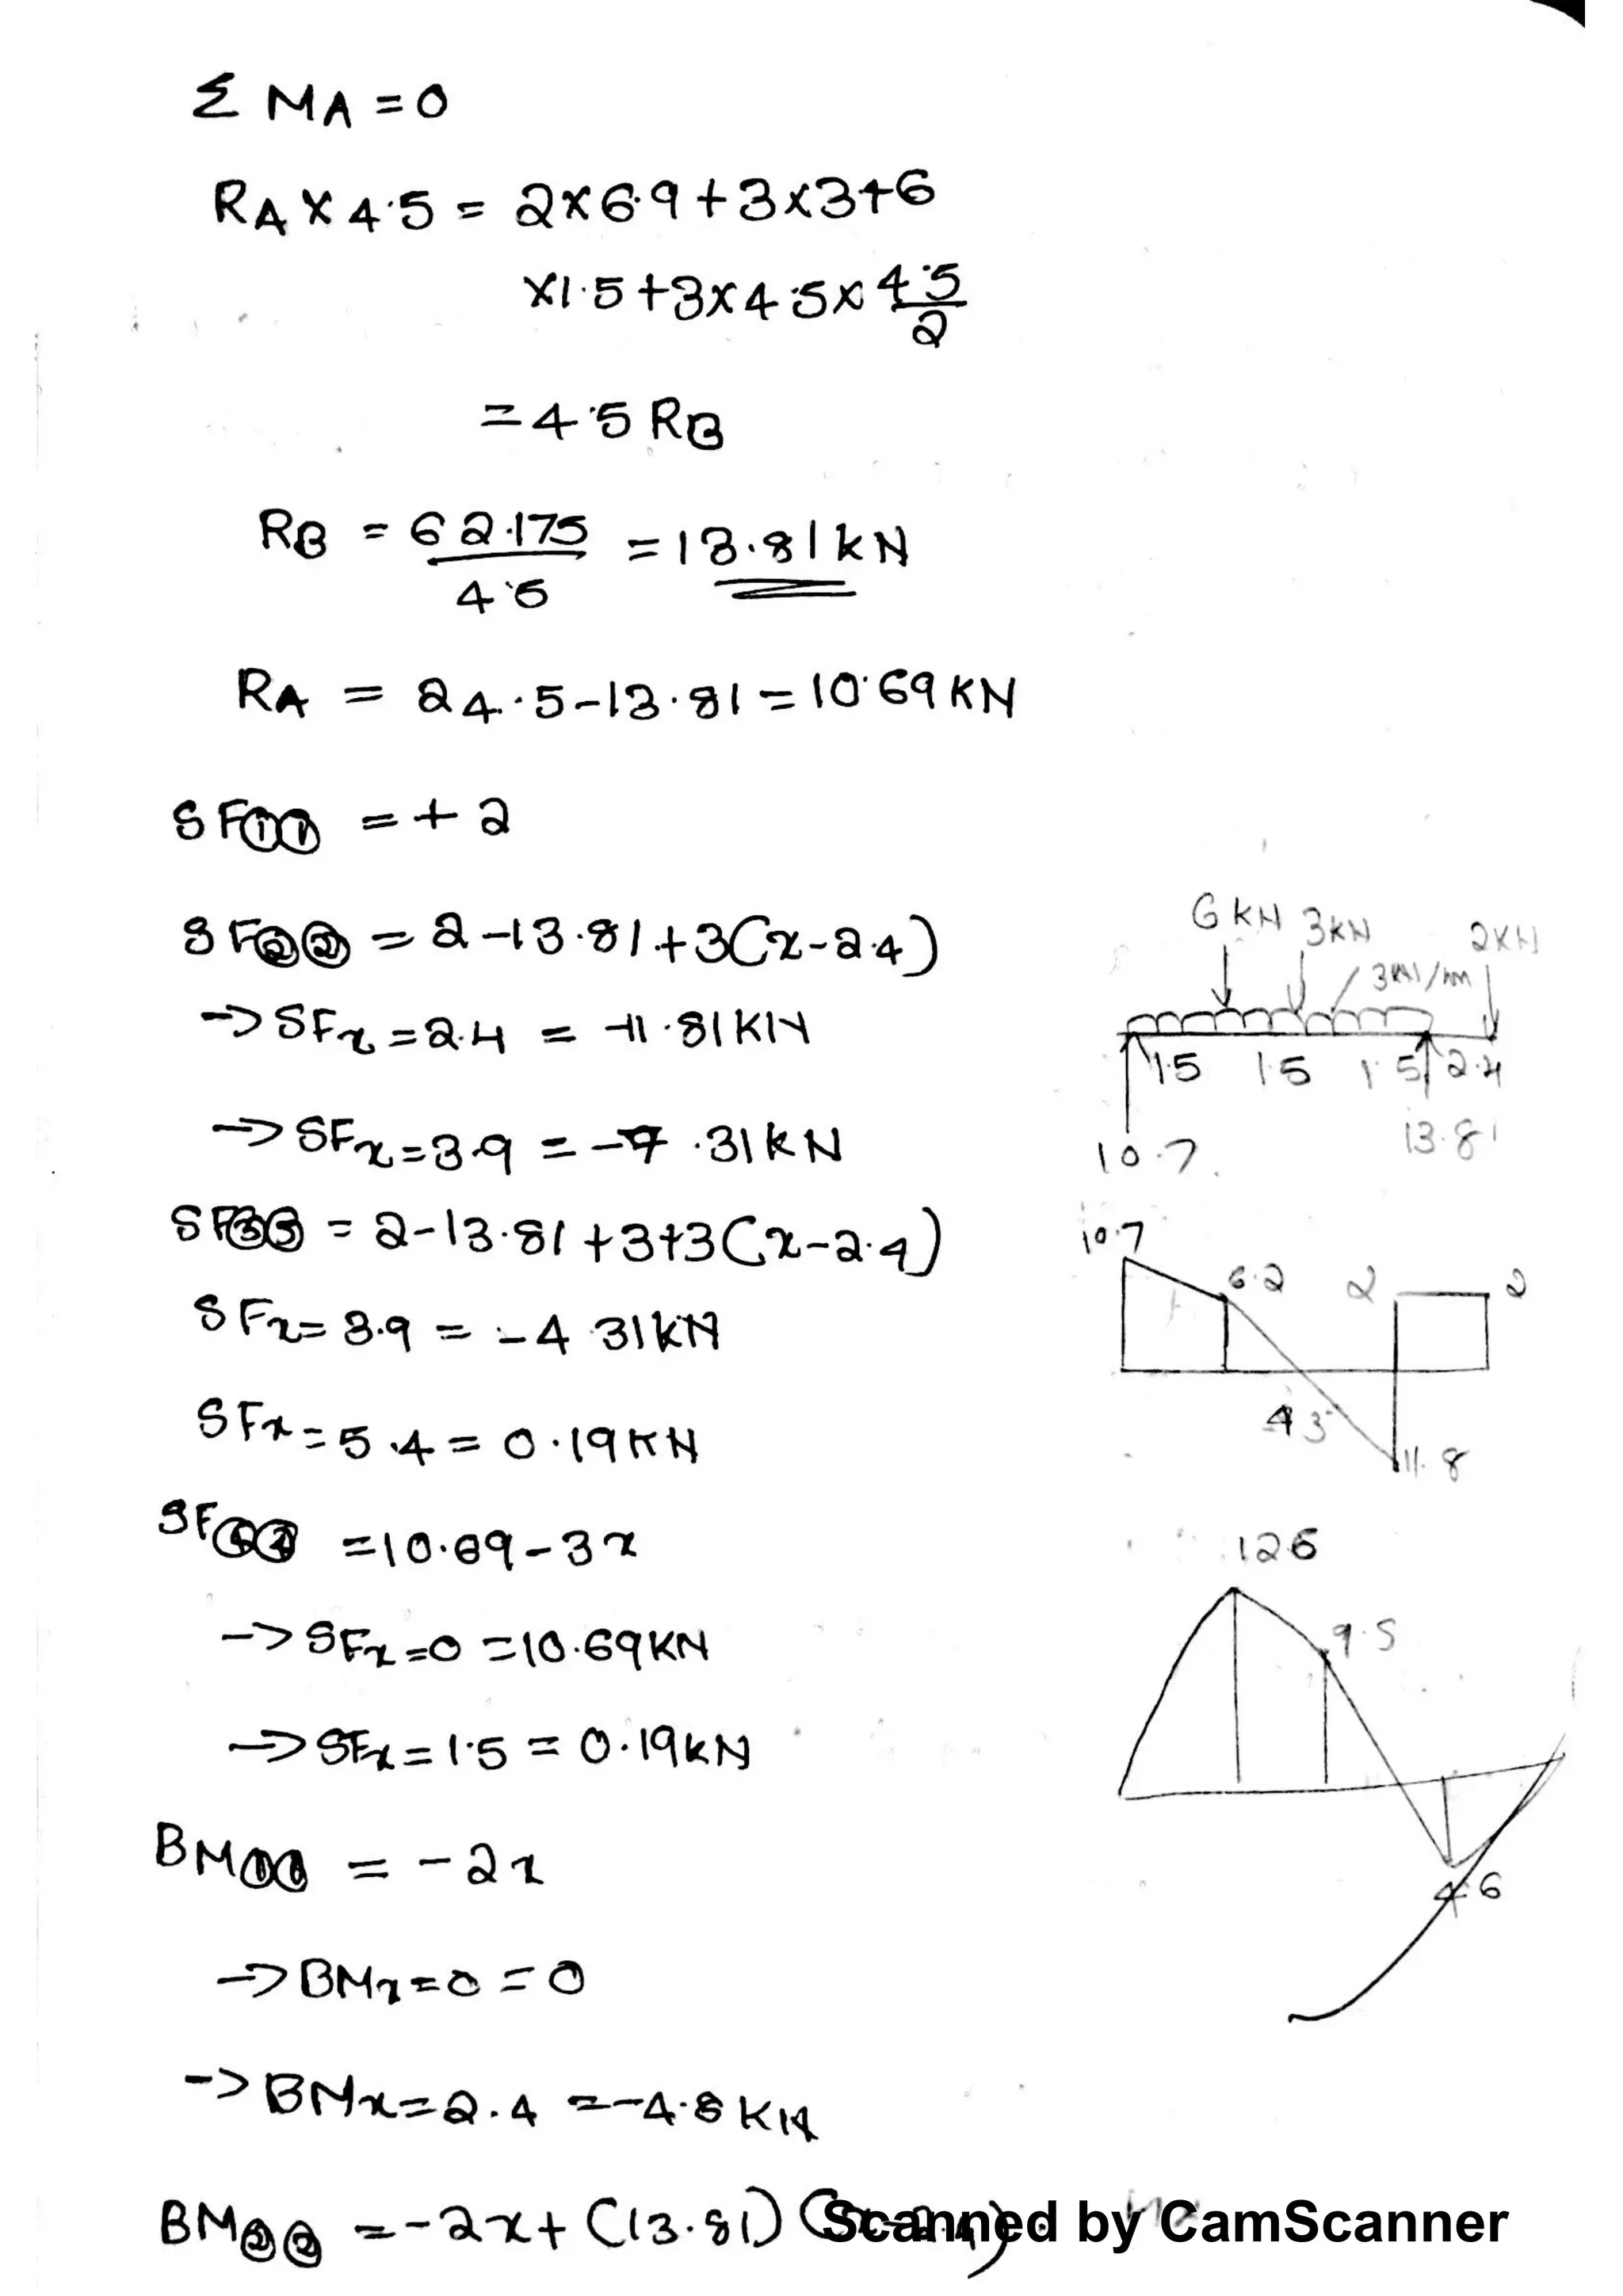 Σ MA = 0
RA × 4.5 = 2×6.9+3×3+6
×1.5+3×4.5×4.5/2
= 4.5 RB
RB = 62.175/4.5 = 13.81kN
RA = 24.5-13.81 = 10.69KN
SF①① = +2
SF②② = 2-13.81+3(x-2.4)
→ SFx=2.4 = -11.81KN
→ SFx=3.9 = -7.31KN
SF③③ = 2-13.81+3+3(x-2.4)
SFx=3.9 = -4.31KN
SFx=5.4 = 0.19KN
SF④④ = 10.69-3x
→ SFx=0 = 10.69KN
→ SFx=1.5 = 0.19KN
BM①① = -2x
→ BMx=0 = 0
→ BMx=2.4 = -4.8KN
BM②② = -2x+(13.81)(x-2.4)
6KN 3KN 2KN
3KN/m
1.5 1.5 1.5 2.4
10.7 13.81
10.7
6.2 2 2
4.3
11.8
12.6
9.5
4.6
Scanned by CamScanner